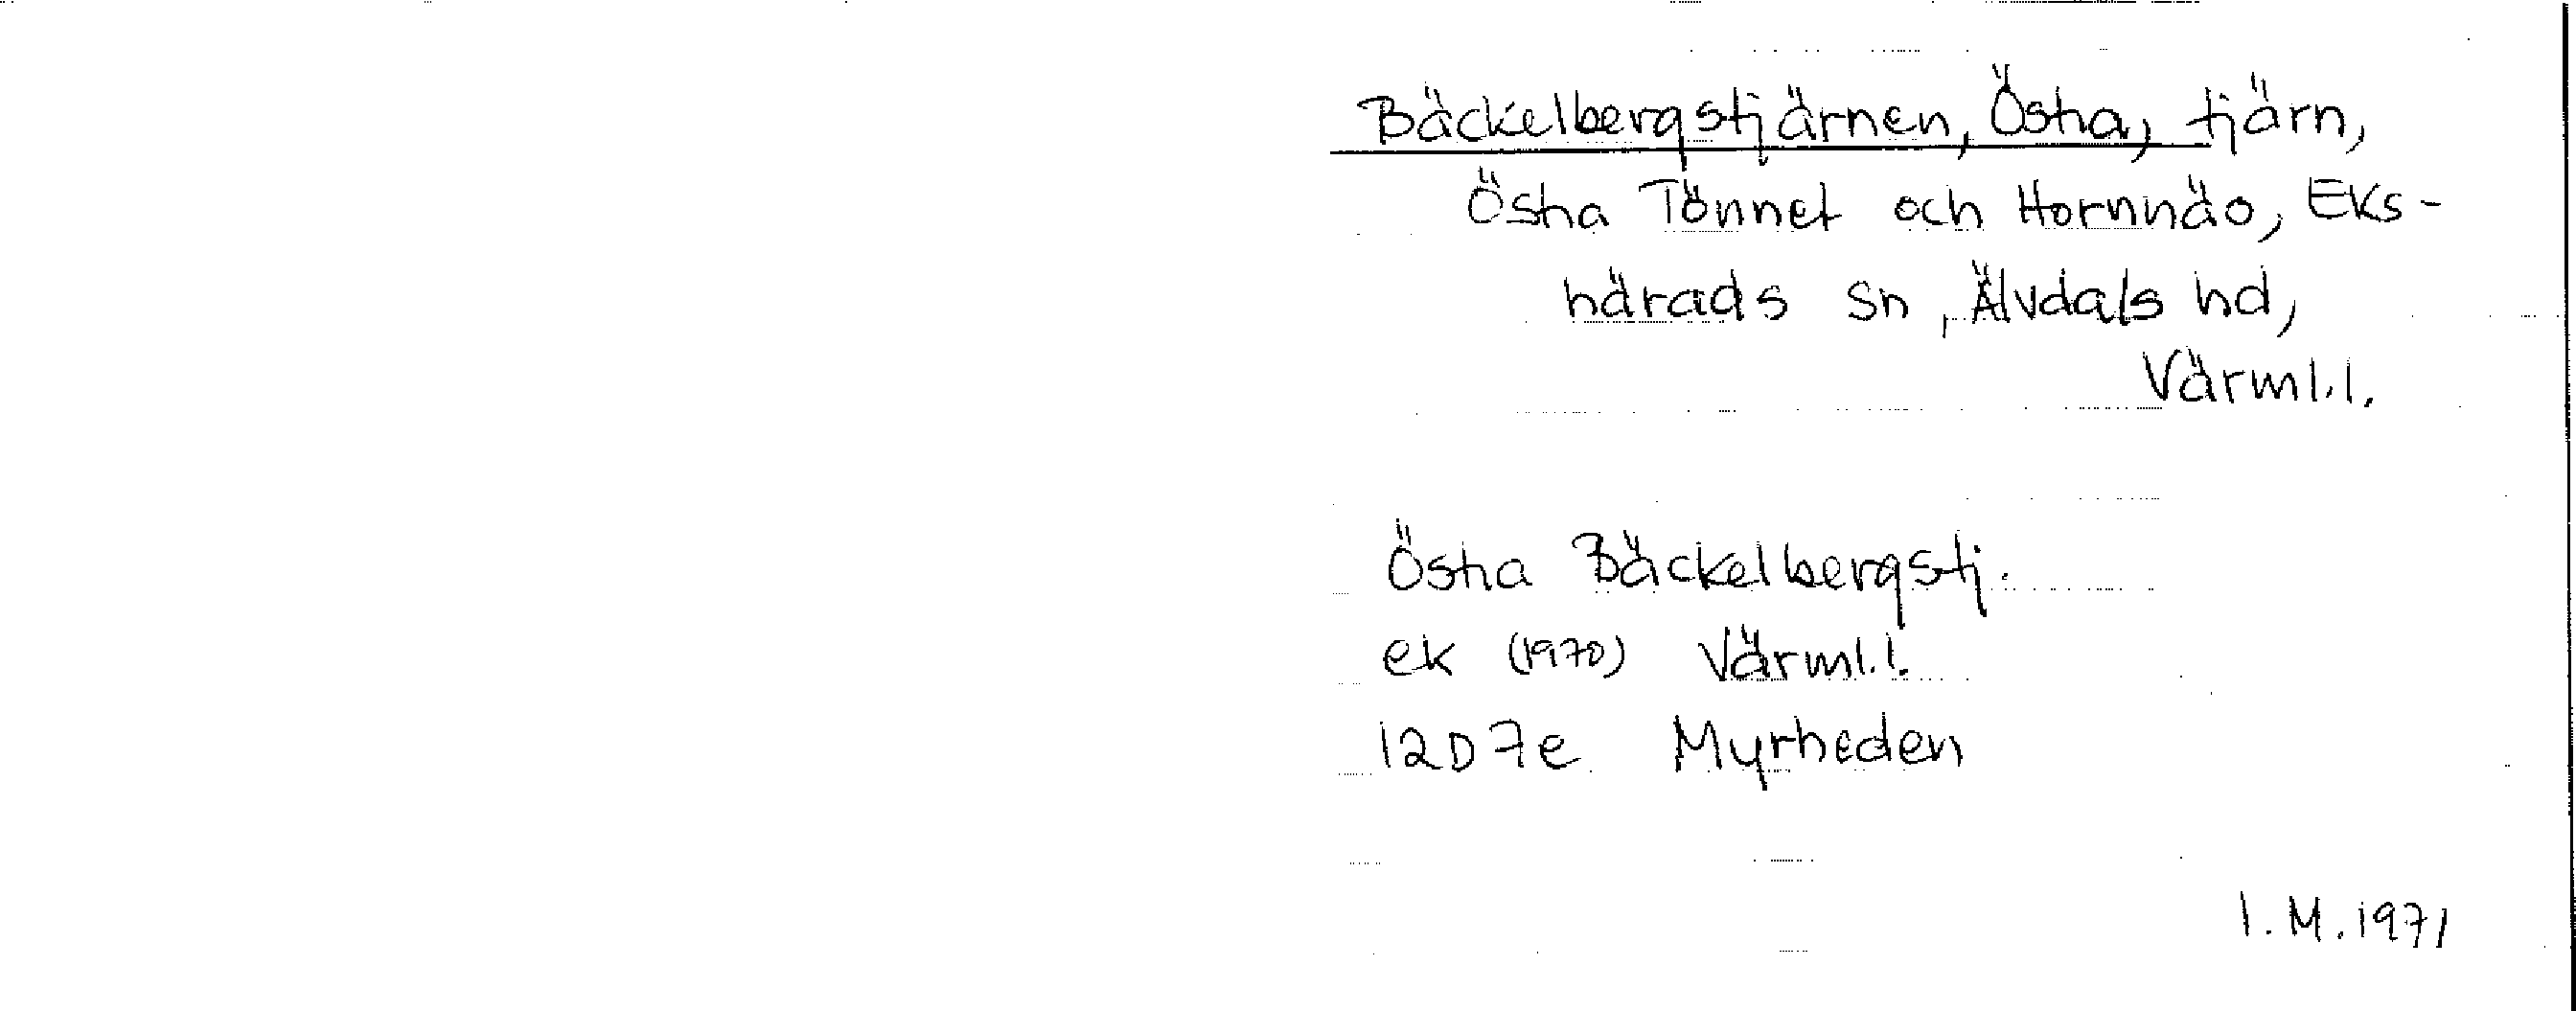 Bäckelbergstjärnen, Östra, tjärn,
Östra Tönnet och Hornnäs, Eks-
härads sn, Älvdals hd,
Värml.l.
Östra Bäckelbergstj.
ek (1970) Värml.l.
12D7e Myrheden
I.M.1971